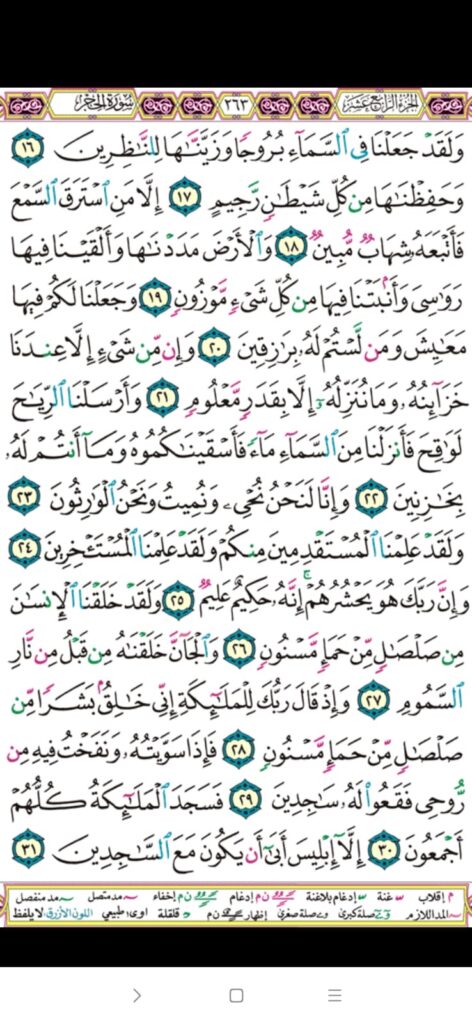 الجزء الرابع عشر ٢٦٣ سورة الحجر
وَلَقَدْ جَعَلْنَا فِي ٱلسَّمَآءِ بُرُوجًا وَزَيَّنَّٰهَا لِلنَّٰظِرِينَ ١٦
وَحَفِظْنَٰهَا مِن كُلِّ شَيْطَٰنٍ رَّجِيمٍ ١٧ إِلَّا مَنِ ٱسْتَرَقَ ٱلسَّمْعَ
فَأَتْبَعَهُۥ شِهَابٌ مُّبِينٌ ١٨ وَٱلْأَرْضَ مَدَدْنَٰهَا وَأَلْقَيْنَا فِيهَا
رَوَٰسِيَ وَأَنۢبَتْنَا فِيهَا مِن كُلِّ شَيْءٍ مَّوْزُونٍ ١٩ وَجَعَلْنَا لَكُمْ فِيهَا
مَعَٰيِشَ وَمَن لَّسْتُمْ لَهُۥ بِرَٰزِقِينَ ٢٠ وَإِن مِّن شَيْءٍ إِلَّا عِندَنَا
خَزَآئِنُهُۥ وَمَا نُنَزِّلُهُۥٓ إِلَّا بِقَدَرٍ مَّعْلُومٍ ٢١ وَأَرْسَلْنَا ٱلرِّيَٰحَ
لَوَٰقِحَ فَأَنزَلْنَا مِنَ ٱلسَّمَآءِ مَآءً فَأَسْقَيْنَٰكُمُوهُ وَمَآ أَنتُمْ لَهُۥ
بِخَٰزِنِينَ ٢٢ وَإِنَّا لَنَحْنُ نُحْيِۦ وَنُمِيتُ وَنَحْنُ ٱلْوَٰرِثُونَ ٢٣
وَلَقَدْ عَلِمْنَا ٱلْمُسْتَقْدِمِينَ مِنكُمْ وَلَقَدْ عَلِمْنَا ٱلْمُسْتَـْٔخِرِينَ ٢٤
وَإِنَّ رَبَّكَ هُوَ يَحْشُرُهُمْ ۚ إِنَّهُۥ حَكِيمٌ عَلِيمٌ ٢٥ وَلَقَدْ خَلَقْنَا ٱلْإِنسَٰنَ
مِن صَلْصَٰلٍ مِّنْ حَمَإٍ مَّسْنُونٍ ٢٦ وَٱلْجَآنَّ خَلَقْنَٰهُ مِن قَبْلُ مِن نَّارِ
ٱلسَّمُومِ ٢٧ وَإِذْ قَالَ رَبُّكَ لِلْمَلَٰٓئِكَةِ إِنِّي خَٰلِقٌۢ بَشَرًا مِّن
صَلْصَٰلٍ مِّنْ حَمَإٍ مَّسْنُونٍ ٢٨ فَإِذَا سَوَّيْتُهُۥ وَنَفَخْتُ فِيهِ مِن
رُّوحِي فَقَعُوا۟ لَهُۥ سَٰجِدِينَ ٢٩ فَسَجَدَ ٱلْمَلَٰٓئِكَةُ كُلُّهُمْ
أَجْمَعُونَ ٣٠ إِلَّآ إِبْلِيسَ أَبَىٰٓ أَن يَكُونَ مَعَ ٱلسَّٰجِدِينَ ٣١
م إقلاب س غنة س إدغام بلاغنة ن م إدغام ن م إخفاء مد متصل مد منفصل
المد اللازم صلة كبرى صلة صغرى إظهار ن م قلقلة اوى: طبيعي اللون الأزرق: لا يلفظ